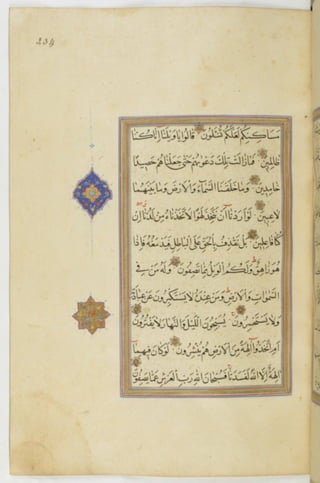 234
مساكنكم لعلكم تسئلون قالوا يا ويلنا انا كنا
ظالمين فما زالت تلك دعويهم حتى جعلناهم حصيدا
خامدين وما خلقنا السماء والارض وما بينهما
لاعبين لو اردنا ان نتخذ لهوا لاتخذناه من لدنا ان
كنا فاعلين بل نقذف بالحق على الباطل فيدمغه فاذا
هو زاهق ولكم الويل مما تصفون وله من في
السموات والارض ومن عنده لا يستكبرون عن عبادته
ولا يستحسرون يسبحون الليل والنهار لا يفترون
ام اتخذوا الهة من الارض هم ينشرون لو كان فيهما
الهة الا الله لفسدتا فسبحان الله رب العرش عما يصفون